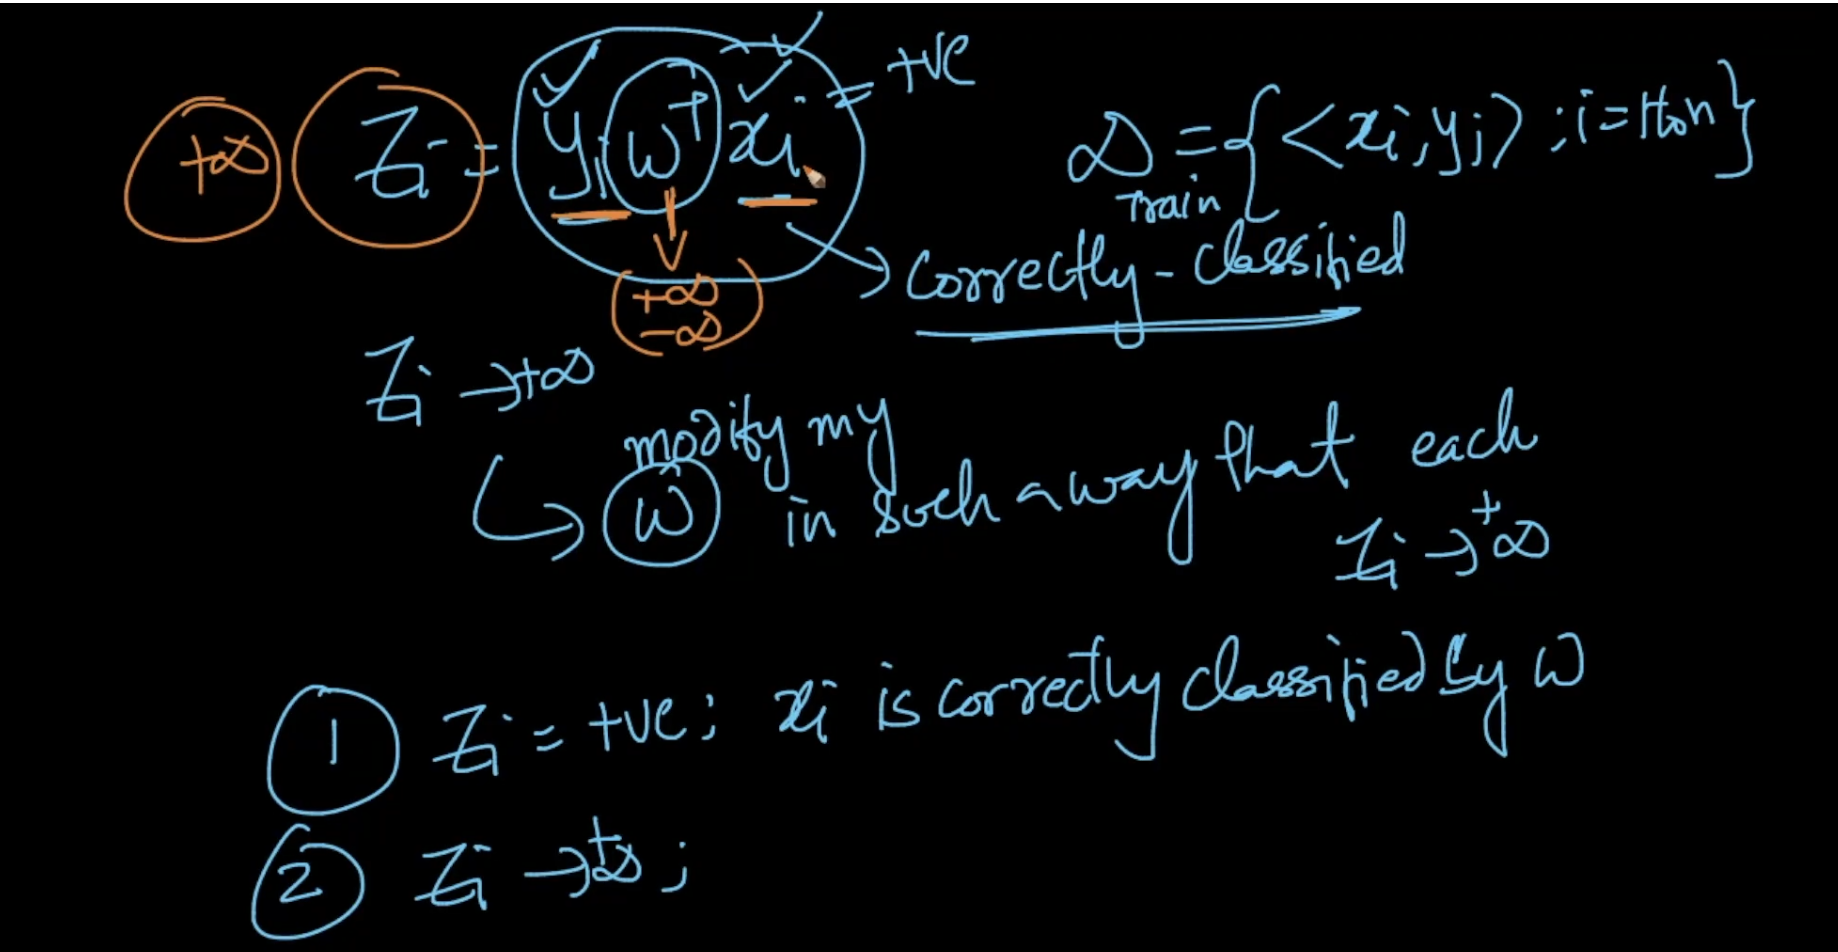 +∞ Zi = yi wᵀ xi = +ve
D Train = {<xi, yi> ; i=1 to n}
+∞
-∞
correctly-classified
Zi → +∞
modify my
w in such a way that each
Zi → +∞
1 Zi = +ve; xi is correctly classified by w
2 Zi → +∞ ;